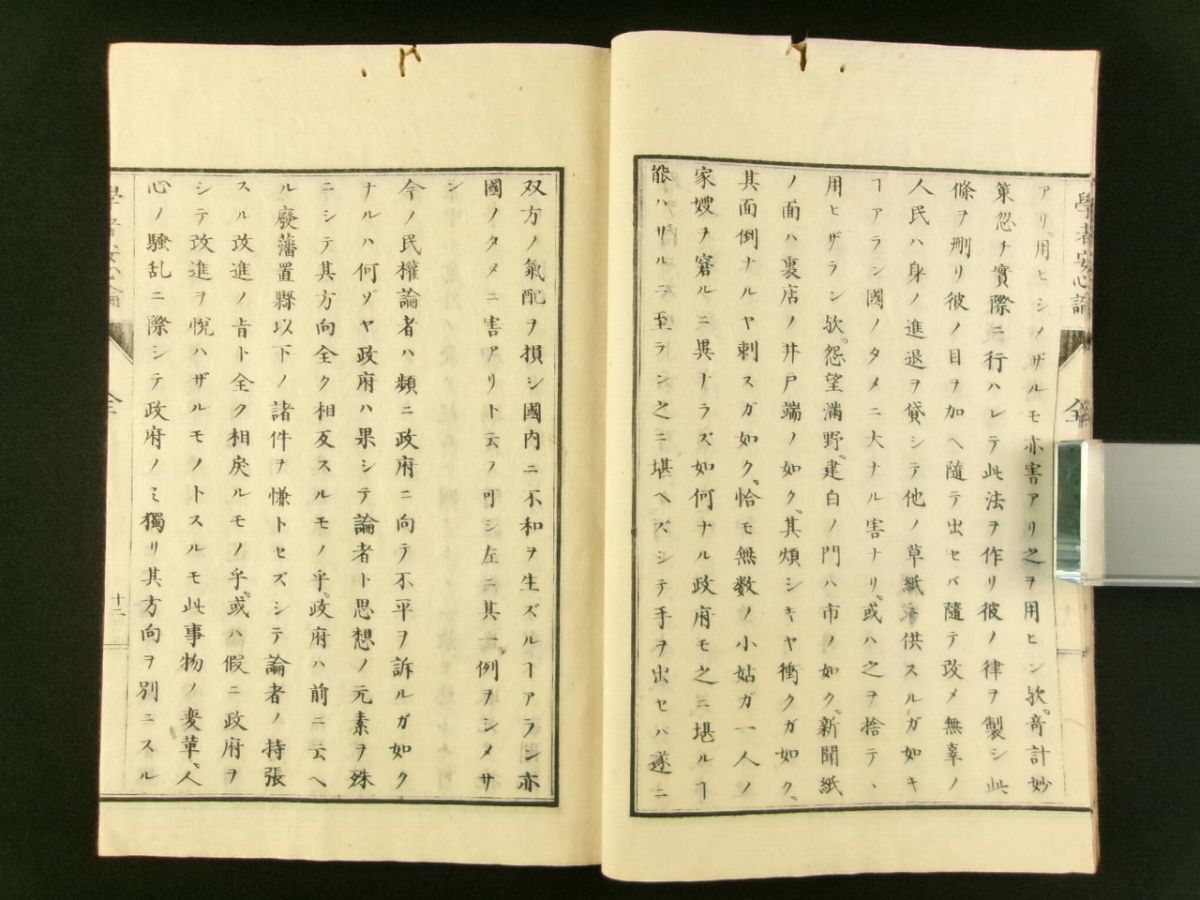 學者安心論
全
アリ、用ヒシメザルモ亦害アリ之ヲ用ヒン欤、奇計妙
策忽チ實際ニ行ハレテ此法ヲ作リ彼ノ律ヲ製シ此
條ヲ刪リ彼ノ目ヲ加ヘ隨テ出セバ隨テ改メ無辜ノ
人民ハ身ノ進退ヲ貸シテ他ノ草紙ニ供スルガ如キ
ヿアラン國ノタメニ大ナル害ナリ、或ハ之ヲ捨テヽ
用ヒザラン欤、怨望滿野、建白ノ門ハ市ノ如ク、新聞紙
ノ面ハ裏店ノ井戸端ノ如ク、其煩シキヤ衝クガ如ク、
其面倒ナルヤ刺スガ如ク、恰モ無数ノ小姑ガ一人ノ
家嫂ヲ窘ルニ異ナラズ如何ナル政府モ之ニ堪ルヿ
能ハザルニ至ラン之ニ堪ヘズシテ手ヲ出セハ遂ニ
双方ノ氣配ヲ損シ國内ニ不和ヲ生ズルヿアラン亦
國ノタメニ害アリト云フ可シ左ニ其一例ヲシメサ
ン
今ノ民權論者ハ頻ニ政府ニ向テ不平ヲ訴ルガ如ク
ナルハ何ゾヤ政府ハ果シテ論者ト思想ノ元素ヲ殊
ニシテ其方向全ク相反スルモノ乎、政府ハ前ニ云ヘ
ル廢藩置縣以下ノ諸件ヲ慊トセズシテ論者ノ持張
スル改進ノ旨ト全ク相戻ルモノ乎、或ハ假ニ政府ヲ
シテ改進ヲ悅ハザルモノトスルモ此事物ノ変革、人
心ノ騷乱ニ際シテ政府ノミ獨リ其方向ヲ別ニスル
學者安心論
全
十二